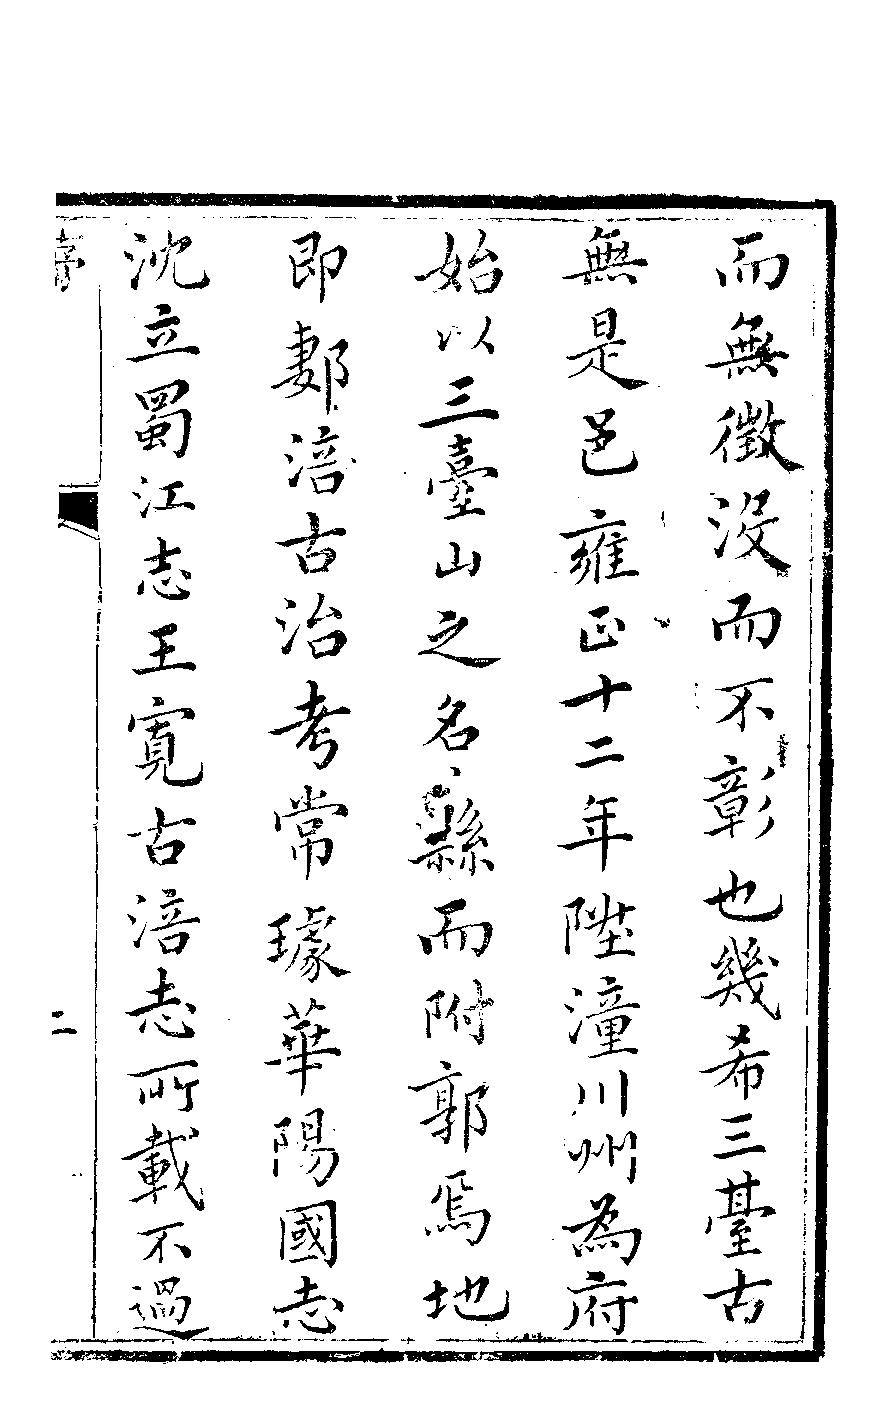 而無徵沒而不彰也幾希三臺古
無是邑雍正十二年陞潼川州為府
始以三臺山之名名縣而附郭焉地
即郪涪古治考常璩華陽國志
沈立蜀江志王寬古涪志所載不過
序
二